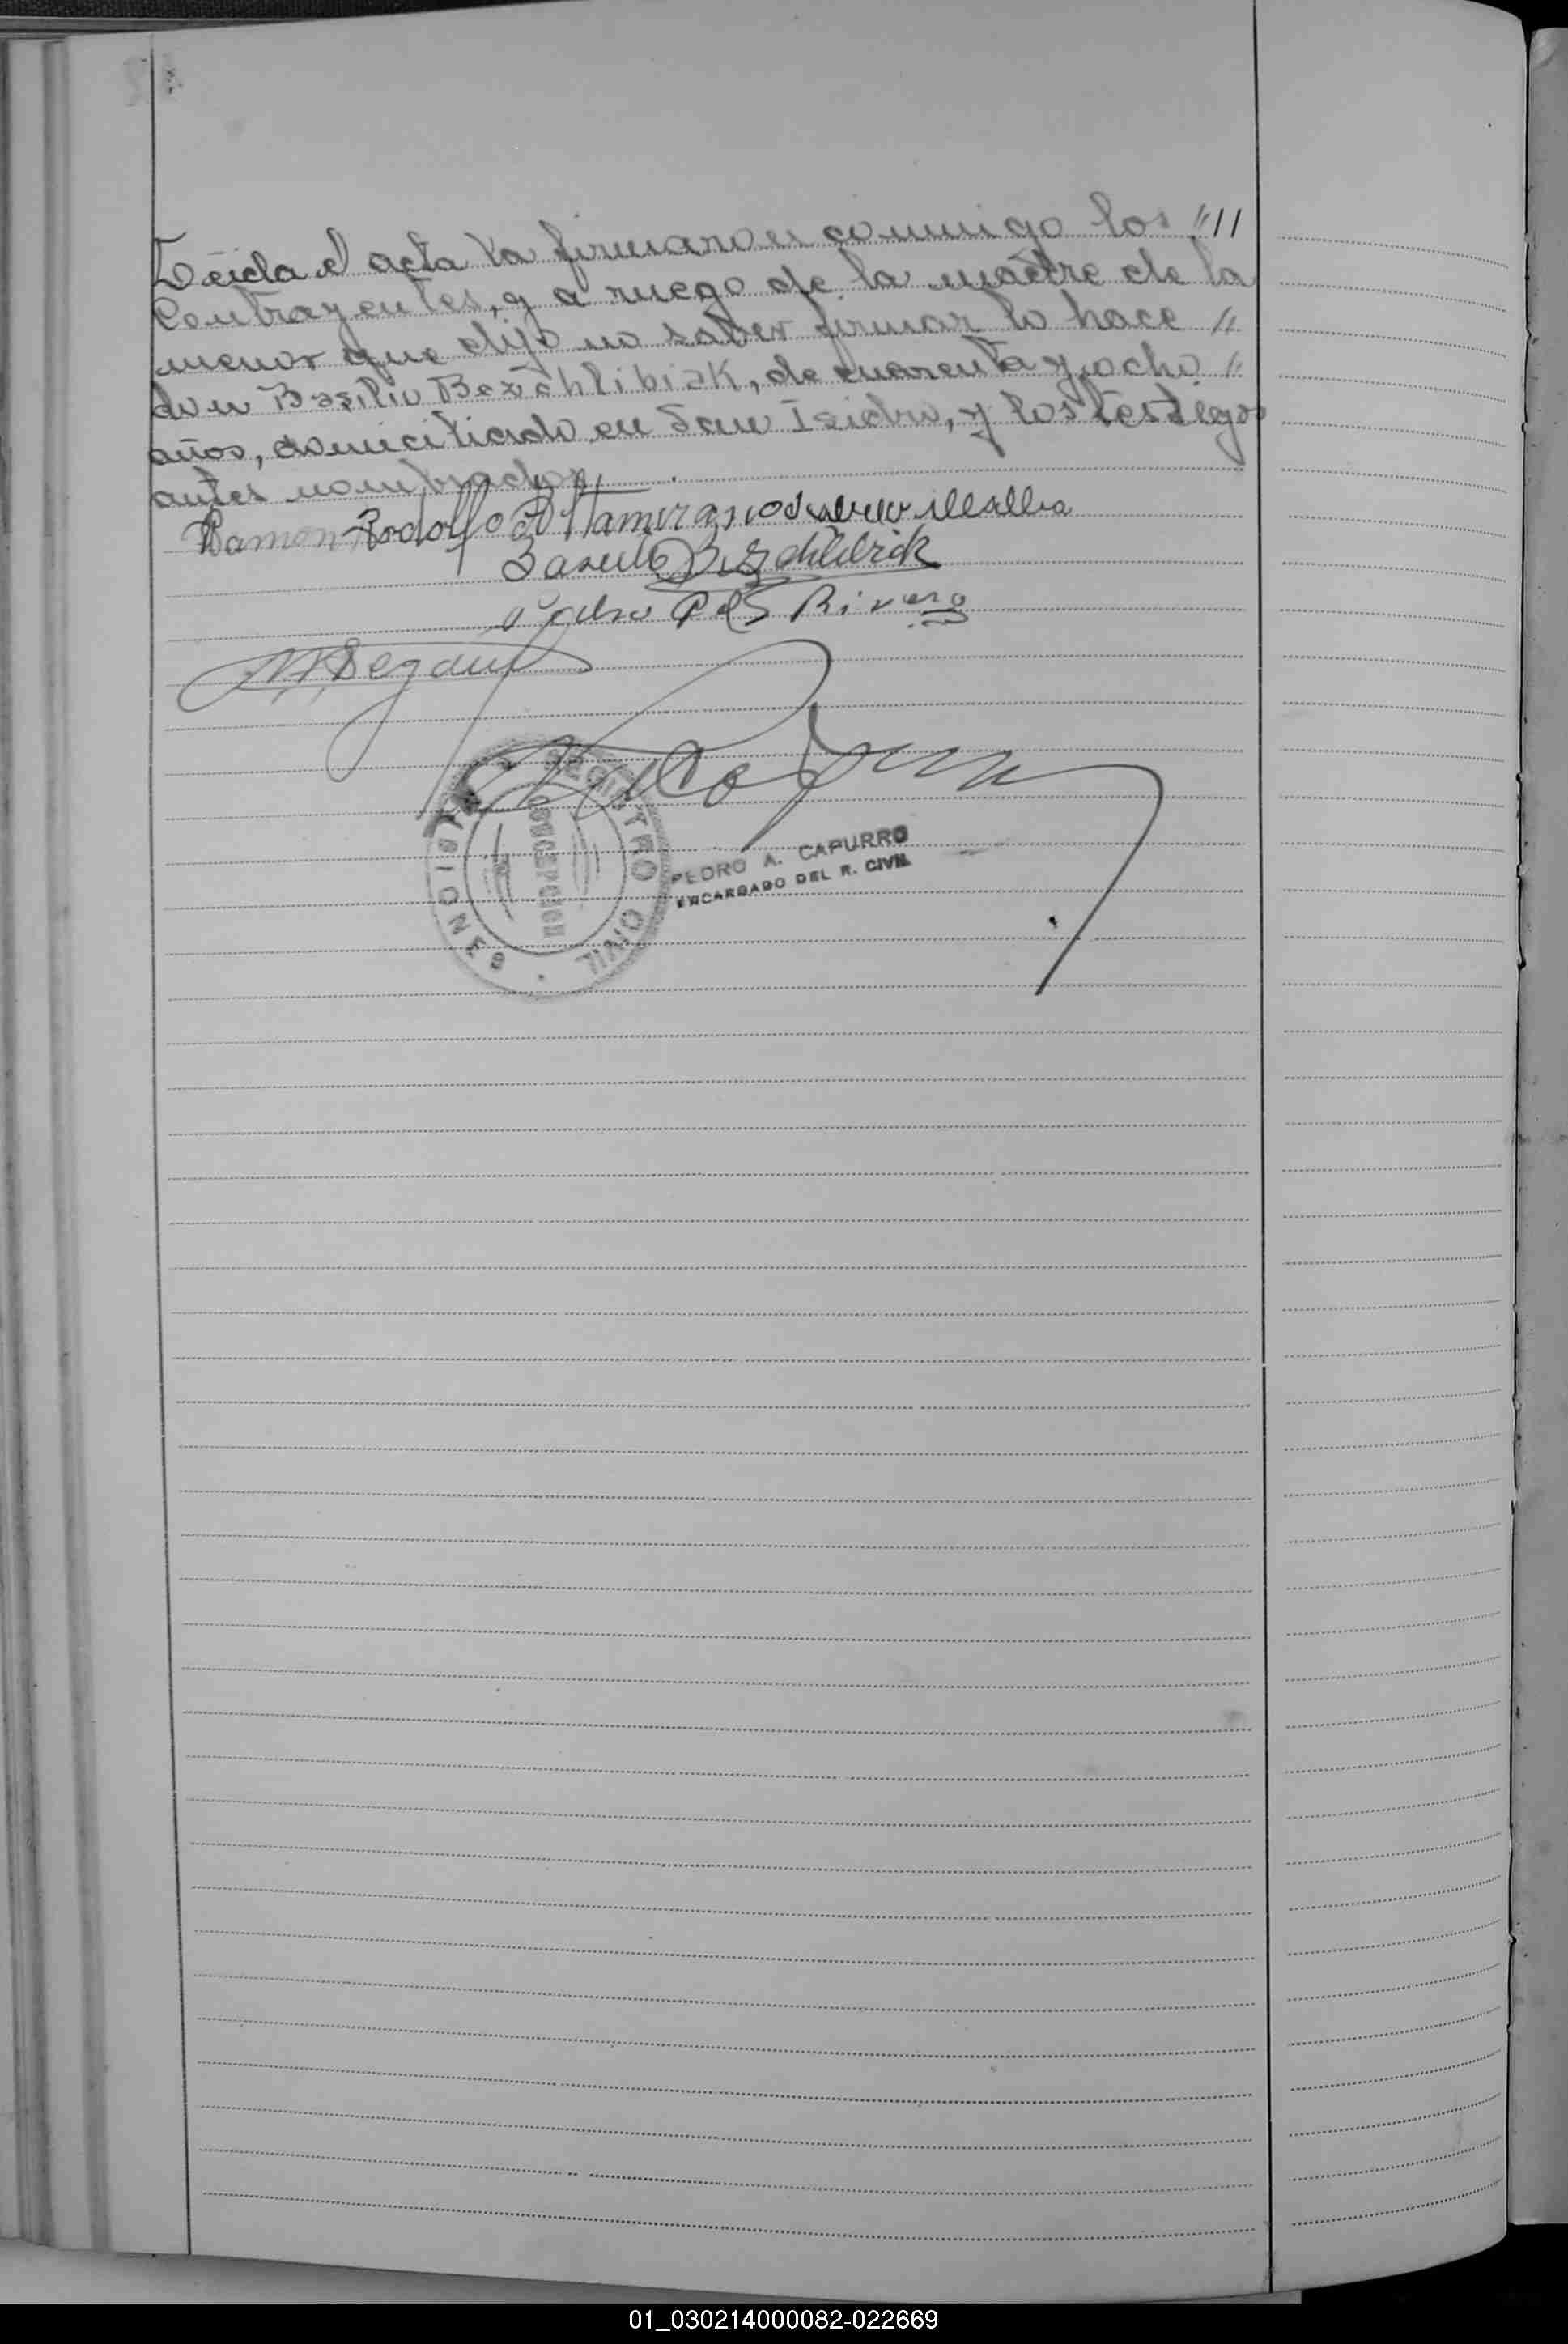 Leida el acta la firmaron conmigo los "//
Contrayentes, y a ruego de la madre de la
menor que dijo no saber firmar lo hace "
don Basilio Bezchlibiak, de cuarenta y ocho "
años, domiciliado en San Isidro, y los testigos
antes nombrados.
Ramon Rodolfo Altamirano
Rivero
REGISTRO CIVIL
CONCEPCION
MISIONES
PEDRO A. CAPURRO
ENCARGADO DEL R. CIVIL
01_030214000082-022669